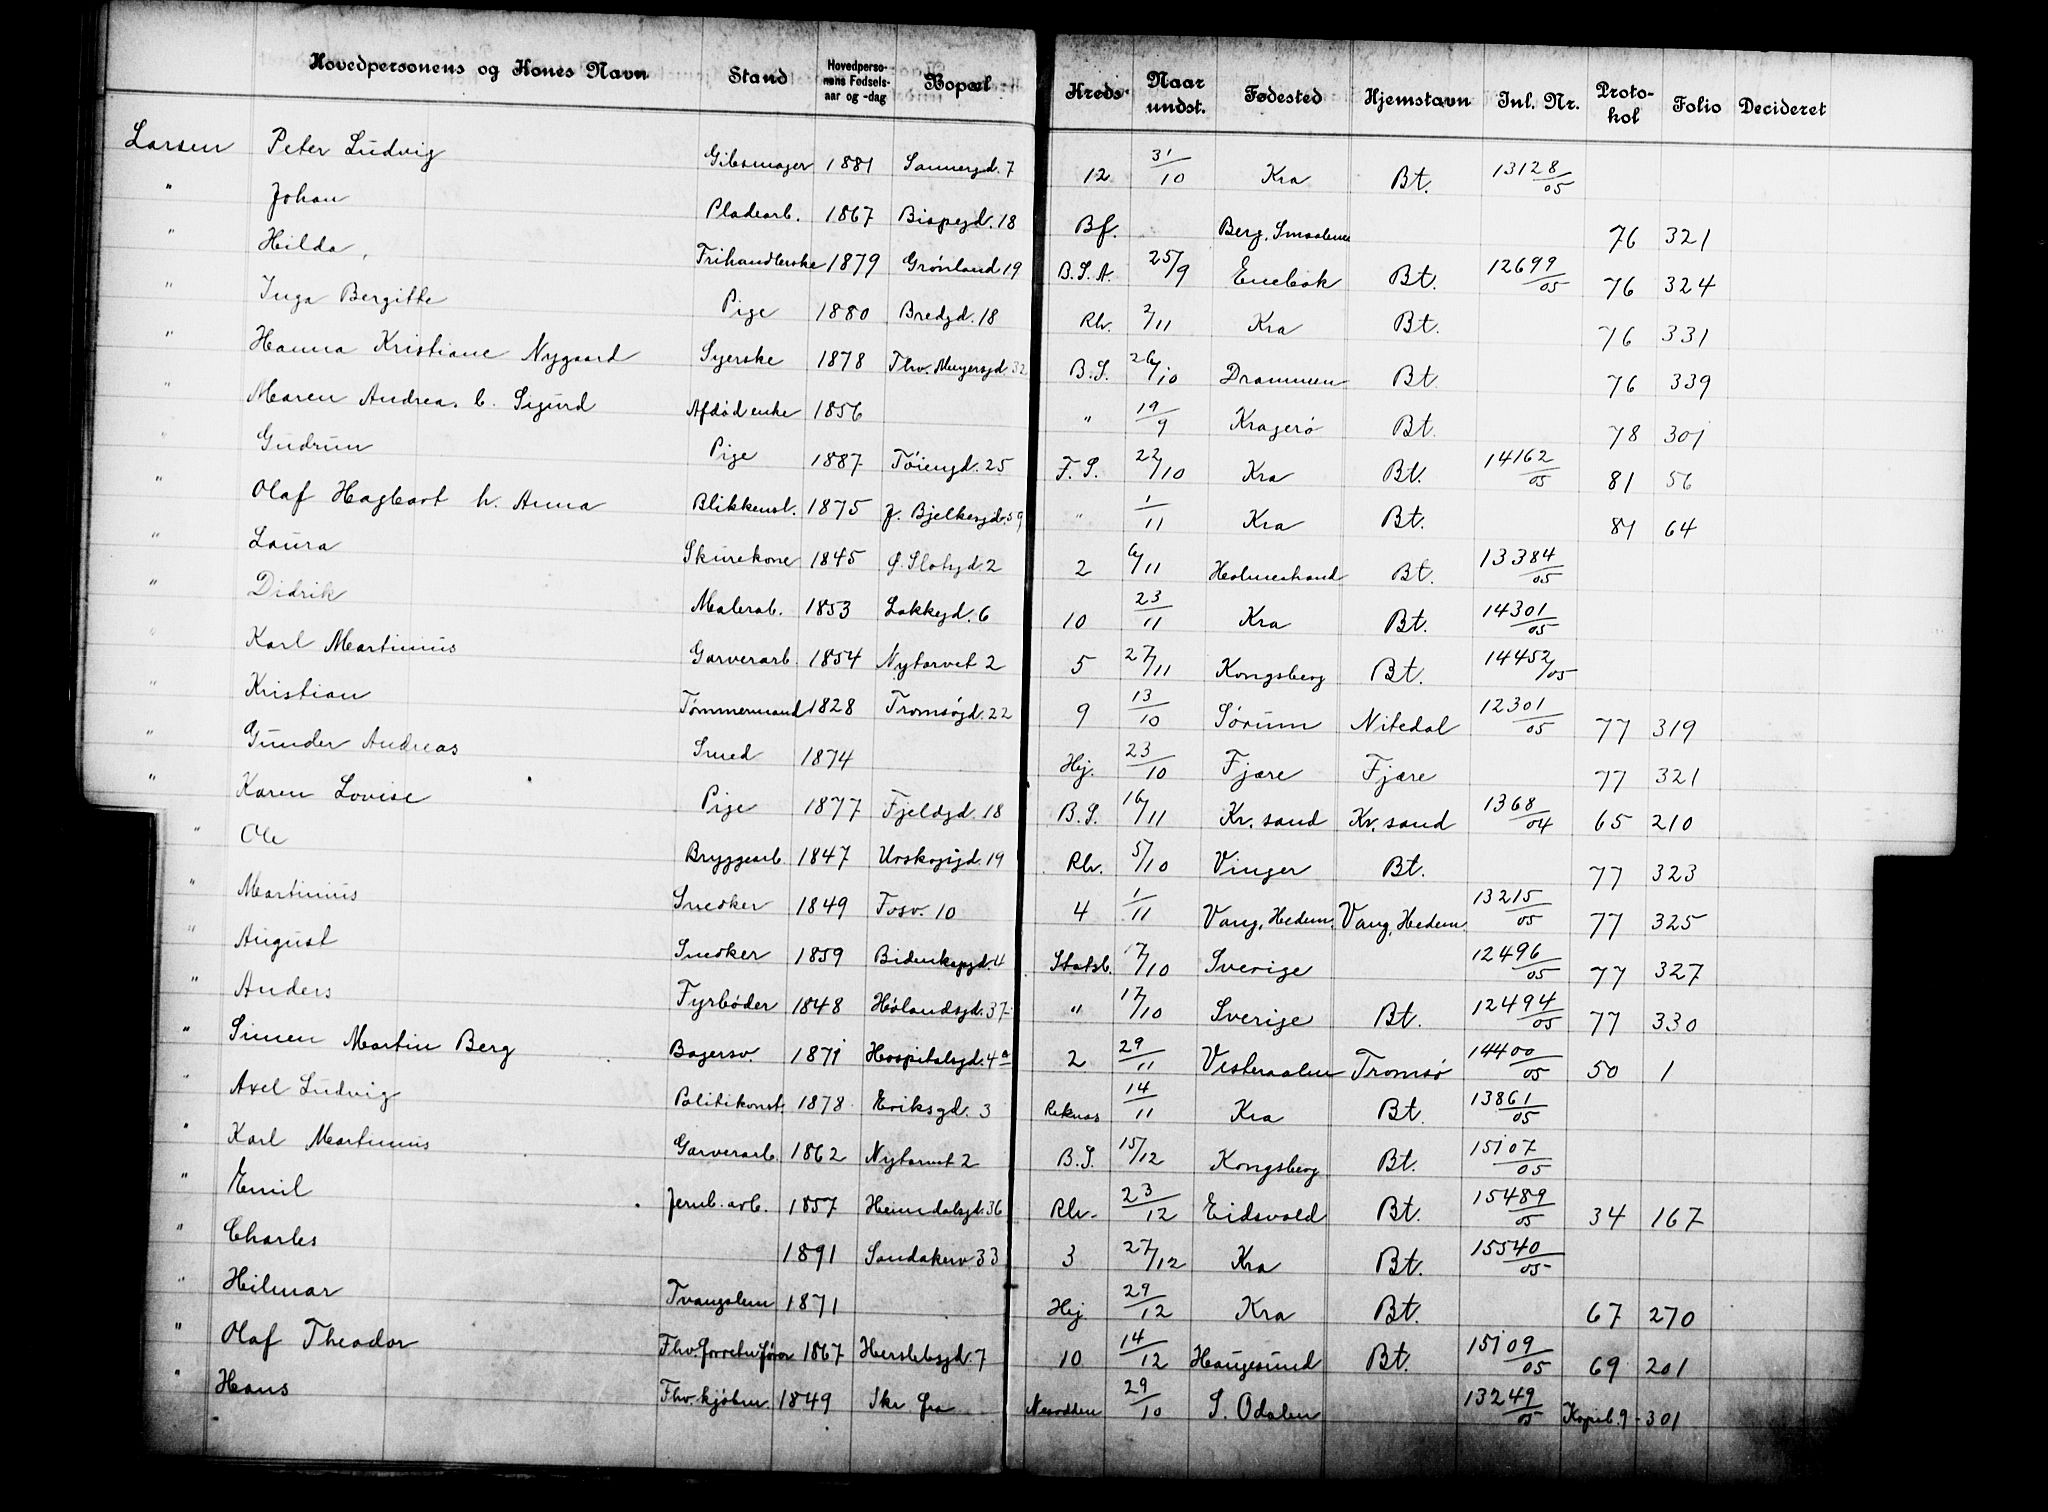 Hovedpersonens og Kones Navn Stand Hovedpersonens Fødselsaar og -dag Bopæl Kreds Naar undst. Fødested Hjemstavn Inl. Nr. Protokol Folio Decideret
Larsen Peter Ludvig Gibsmager 1881 Sannergd. 7 12 31/10 Kra Bt. 13128/05
" Johan Pladearb. 1867 Bispegd. 18 Bf. Berg, Smaalenene 76 321
" Hilda, Frihandlerske 1879 Grønland 19 B.S.A. 25/9 Enebak Bt. 12699/05 76 324
" Inga Bergitte Pige 1880 Bredgd. 18 Rh. 2/11 Kra Bt. 76 331
" Hanna Kristiane Nygaard Syerske 1878 Thv. Meyersgd. 32 B.S. 26/10 Drammen Bt. 76 339
" Maren Andrea, b. Sigurd Afdød enke 1856 " 19/9 Kragerø Bt. 78 301
" Gudrun Pige 1887 Tøiengd. 25 F.S. 22/10 Kra Bt. 14162/05 81 56
" Olaf Hagbart h. Anna Blikkensl. 1875 J. Bjelkesgd. 59 " 1/11 Kra Bt. 81 64
" Laura Skurekone 1845 Ø. Slotsgd. 2 2 6/11 Holmestrand Bt. 13384/05
" Didrik Malerab. 1853 Lakkegd. 6 10 23/11 Kra Bt. 14301/05
" Karl Martinius Garverarb. 1854 Nytorvet 2 5 27/11 Kongsberg Bt. 14452/05
" Kristian Tømmermand 1828 Tromsøgd. 22 9 13/10 Sørum Nitedal 12301/05 77 319
" Gunder Andreas Smed 1874 Hej. 23/10 Fjære Fjære 77 321
" Karen Lovise Pige 1877 Fjeldgd. 18 B.S. 16/11 Kr. sand Kr. sand 1368/04 65 210
" Ole Bryggearb. 1847 Urskoggd. 19 Rh. 5/10 Vinger Bt. 77 323
" Martinius Snedker 1849 Fosv. 10 4 1/11 Vang, Hedem. Vang, Hedem. 13215/05 77 325
" August Snedker 1859 Bidenkapgd. 4 Statsb. 17/10 Sverige 12496/05 77 327
" Anders Fyrbøder 1848 Hølandsgd. 37 " 17/10 Sverige Bt. 12494/05 77 330
" Simen Martin Berg Bagersv. 1871 Hospitalsgd. 4a 2 29/11 Vesteraalen Tromsø 14400/05 50 1
" Axel Ludvig Politikonst. 1878 Eriksgd. 3 Reknæs 14/11 Kra Bt. 13861/05
" Karl Martinius Garverarb. 1862 Nytorvet 2 B.S. 15/12 Kongsberg Bt. 15107/05
" Emil Jernb. arb. 1857 Heimdalsgd. 36 Rh. 23/12 Eidsvold Bt. 15489/05 34 167
" Charles 1891 Sandakerv 33 3 27/12 Kra Bt. 15540/05
" Hilmar Tvangslem 1871 Hej 29/12 Kra Bt. 67 270
" Olaf Theodor Fhv. 1867 Herslebsgd. 7 10 14/12 Haugesund Bt. 15109/05 69 201
" Hans Fhv. kjøbm. 1849 Nesodden 29/10 S. Odalen 13249/05 Kopieb. 9 - 301